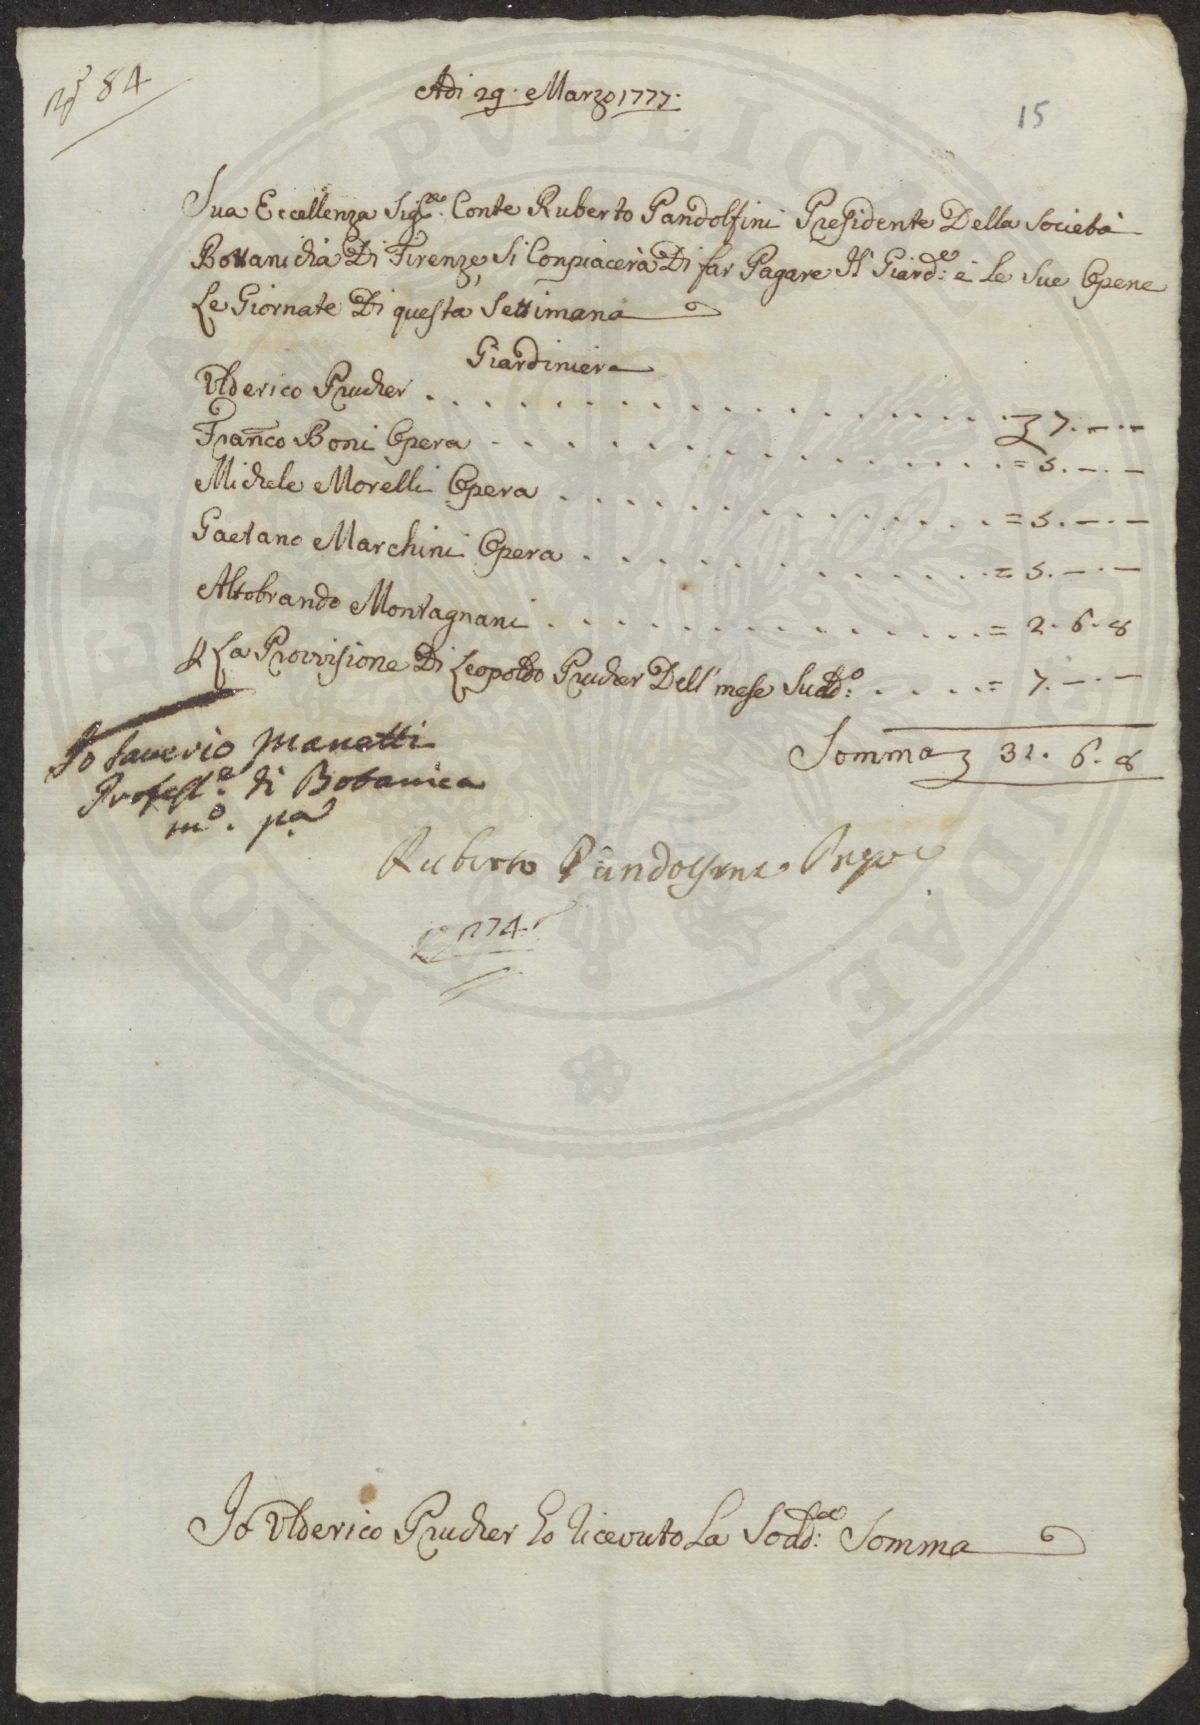 N° 84
Adi 29. Marzo 1777.
15
Sua Eccellenza Sig:re Conte Ruberto Pandolfini Presidente Della Società
Bottanicha Di Firenze, Si Conpiacerà Di far Pagare Il Giard:e e Le Sue Opene
Le Giornate Di questa Settimana
Giardiniera
Ulderico Prucher . . . . . . . . . . . . . . . . . . . 7. — . —
Franco Boni Opera . . . . . . . . . . . . . . . = 5. — . —
Michele Morelli Opera . . . . . . . . . . . . . = 5. — . —
Gaetano Marchini Opera . . . . . . . . . . . . = 5. — . —
Altobrando Montagnani . . . . . . . . . . . . . = 2. 6. 8
p La Provvisione Di Leopoldo Prucher Dell' mese Sudd:o . . . . . = 7. — . —
Somma 31. 6. 8
Io Saverio Manetti
Profess:e di Botanica
m:o p:a
Ruberto Pandolfini
274
Io Ulderico Prucher ho ricevuto La Sodd:a Somma
PRO PERITA PVBLICA